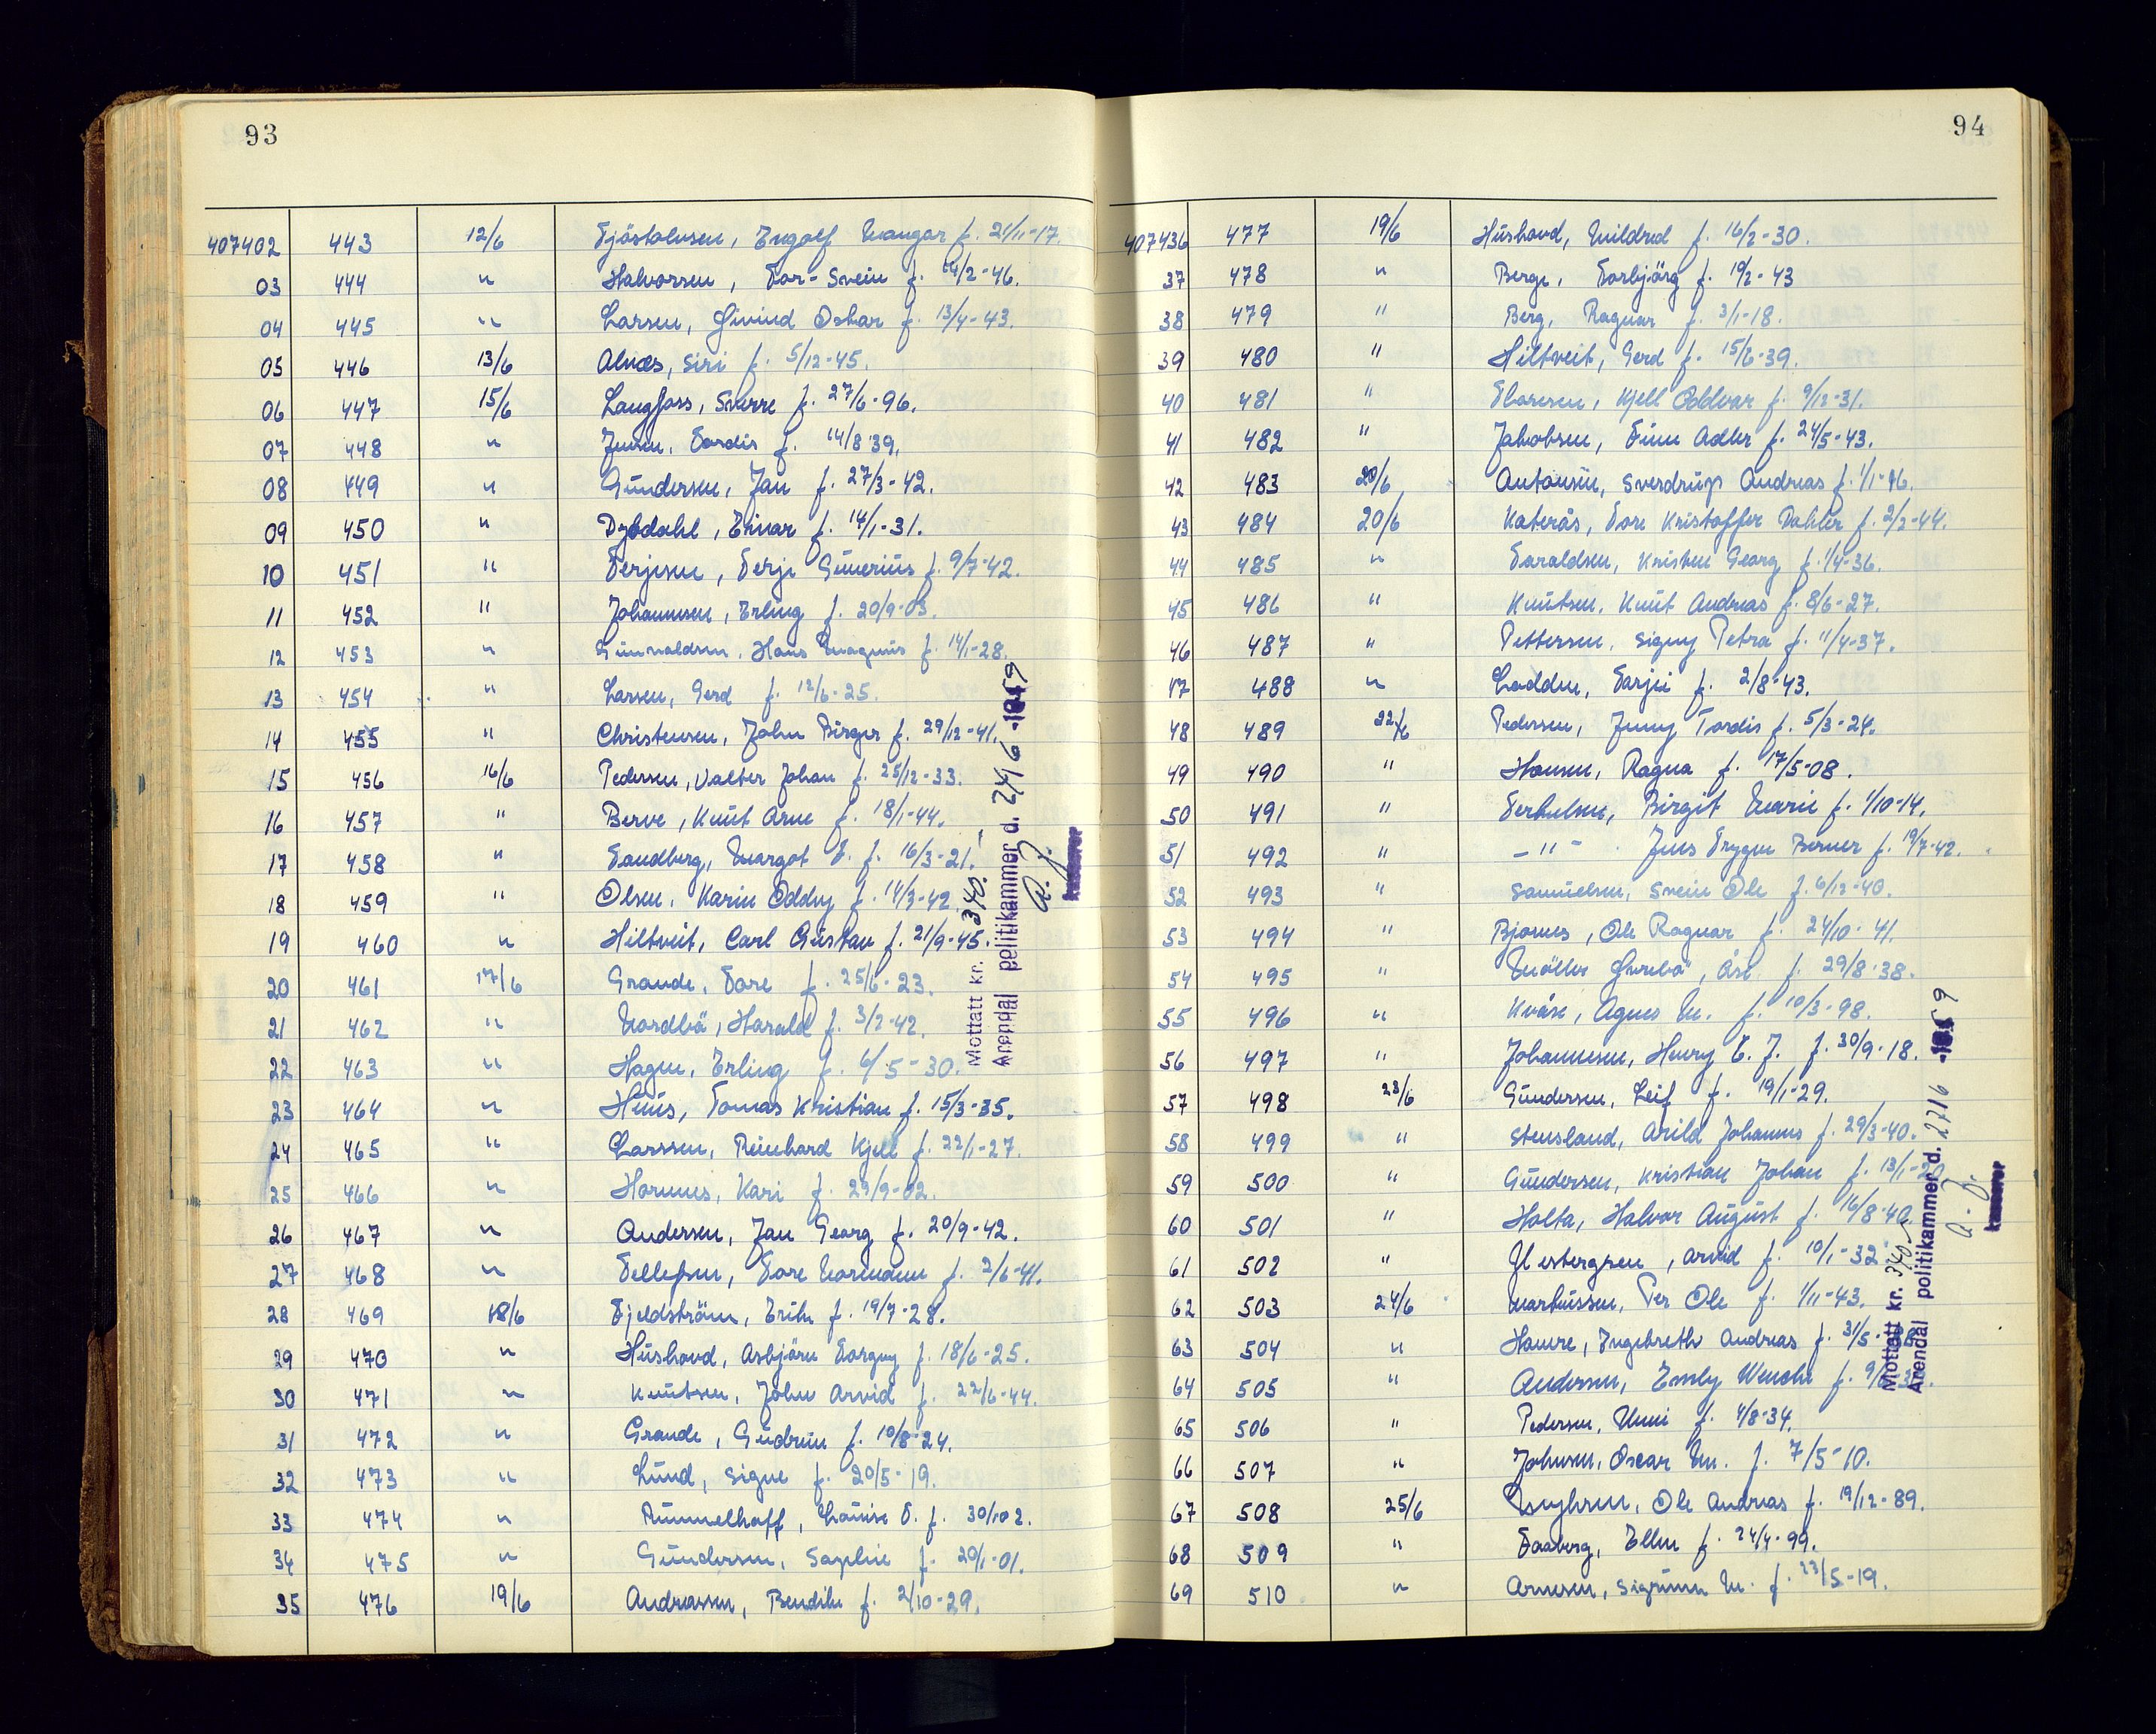 93
407402 443 12/6 Tjöstolvsen, Ingolf Mangar f. 21/11-17.
03 444 " Halvorsen, Tor-Svein f. 14/2-46.
04 445 " Larsen, Øivind Oskar f. 13/4-43.
05 446 13/6 Alnæs, Siri f. 5/12-45.
06 447 15/6 Langfoss, Sverre f. 27/6-96.
07 448 " Jensen, Tordis f. 14/8 39.
08 449 " Gundersen, Jan f. 27/3-42.
09 450 " Dybdahl, Einar f. 14/1-31.
10 451 " Terjesen, Terje Gunerius f. 9/7-42.
11 452 " Johannesen, Erling f. 20/9-03.
12 453 " Gunvaldsen, Hans Magnus f. 14/1-28.
13 454 " Larsen, Gerd f. 12/6-25.
14 455 " Christensen, John Birger f. 29/12-41.
15 456 16/6 Pedersen, Valter Johan f. 25/12-33.
16 457 " Berve, Knut Arne f. 18/1-44.
17 458 " Sandberg, Margot E. f. 16/3-21.
18 459 " Olsen, Karin Oddny f. 14/3-42.
19 460 " Hiltveit, Carl Gustav f. 21/9-45.
20 461 17/6 Grande, Tore f. 25/6-23.
21 462 " Nordbö, Harald f. 3/2-42.
22 463 " Hagen, Erling f. 6/5-30.
23 464 " Huus, Tomas Kristian f. 15/3-35.
24 465 " Larssen, Reinhard Kjell f. 22/1-27.
25 466 " Hornnes, Kari f. 29/9-02.
26 467 " Andersen, Jan Georg f. 20/9-42.
27 468 " Tellefsen, Tore Normann f. 2/6-41.
28 469 18/6 Fjeldström, Erik f. 19/7-28.
29 470 " Hushovd, Asbjörn Torgny f. 18/6-25.
30 471 " Knutsen, John Arvid f. 22/6-44.
31 472 " Grande, Gudrun f. 10/8-24.
32 473 " Lund, Signe f. 20/5-19.
33 474 " Rummelhoff, Louise O. f. 30/10 2.
34 475 " Gundersen, Sophie f. 20/1-01.
35 476 19/6 Andreassen, Bendik f. 2/10-29.
Mottatt kr. 340.-
Arendal politikammer d. 24/6-1959
A. J.
kasserer
94
407436 477 19/6 Hushovd, Mildred f. 16/2-30.
37 478 " Berge, Torbjörg f. 19/2-43
38 479 " Berg, Ragnar f. 3/1-18.
39 480 " Hiltveit, Gerd f. 15/6-39.
40 481 " Thoresen, Kjell Oddvar f. 9/12-31.
41 482 " Jakobsen, Finn Adler f. 24/5-43.
42 483 20/6 Antonsen, Sverdrup Andreas f. 1/1-16.
43 484 20/6 Katerås, Tore Kristoffer Dahler f. 2/2-44.
44 485 " Taraldsen, Kristen Georg f. 1/4-36.
45 486 " Knutsen, Knut Andreas f. 8/6-27.
46 487 " Pettersen, Signy Petra f. 11/4-37.
47 488 " Lodden, Tarjei f. 2/8-43.
48 489 22/6 Pedersen, Jenny Tordis f. 5/3-24.
49 490 " Hansen, Ragna f. 17/5-08.
50 491 " Terkelsen, Birgit Marie f. 1/10-14.
51 492 " — " — Jens Trygve Berner f. 19/7-42.
52 493 " Samuelsen, Svein Ole f. 6/12-40.
53 494 " Bjornes, Ole Ragnar f. 24/10-41.
54 495 " Möller Åse f. 29/8-38.
55 496 " Kvåse, Agnes M. f. 10/3-98.
56 497 " Johannesen, Henry E. J. f. 30/9-18.
57 498 23/6 Gundersen, Leif f. 19/1-29.
58 499 " Stensland, Arild Johannes f. 29/3-40.
59 500 " Gundersen, Kristian Johan f. 13/1-20
60 501 " Holta, Halvor August f. 16/8-40.
61 502 " Glestergsen, Arvid f. 10/1-32
62 503 24/6 Martinssen, Per Ole f. 1/11-43.
63 504 " Haure, Ingebreth Andreas f. 31/5-
64 505 " Andersen, Emly Wenche f. 9/
65 506 " Pedersen, Unni f. 4/8-34.
66 507 " Johnsen, Oscar M. f. 7/5-10.
67 508 25/6 Ole Andreas f. 19/12-89.
68 509 " Taaberg, Ellen f. 24/4-99.
69 510 " Arnesen, Sigrunn M. f. 23/5-19.
Mottatt kr. 340.-
Arendal politikammer d. 27/6-1959
A. J.
kasserer